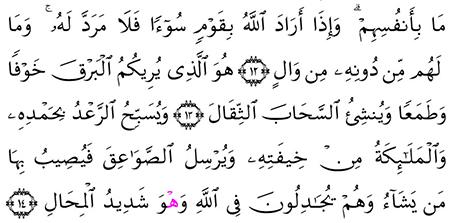 مَا بِأَنفُسِهِمْ ۗ وَإِذَا أَرَادَ ٱللَّهُ بِقَوْمٍ سُوٓءًا فَلَا مَرَدَّ لَهُۥ ۚ وَمَا
لَهُم مِّن دُونِهِۦ مِن وَالٍ ﴿١٢﴾ هُوَ ٱلَّذِى يُرِيكُمُ ٱلْبَرْقَ خَوْفًا
وَطَمَعًا وَيُنشِئُ ٱلسَّحَابَ ٱلثِّقَالَ ﴿١٣﴾ وَيُسَبِّحُ ٱلرَّعْدُ بِحَمْدِهِۦ
وَٱلْمَلَٰٓئِكَةُ مِنْ خِيفَتِهِۦ وَيُرْسِلُ ٱلصَّوَٰعِقَ فَيُصِيبُ بِهَا
مَن يَشَآءُ وَهُمْ يُجَٰدِلُونَ فِى ٱللَّهِ وَهْوَ شَدِيدُ ٱلْمِحَالِ ﴿١٤﴾